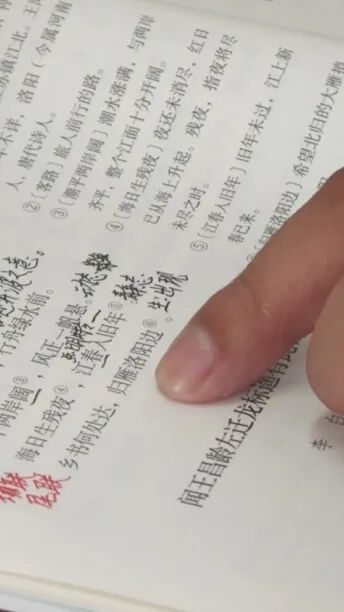 苏镇江北。王
不详，洛阳（今属河南
人，唐代诗人。
②〔客路〕旅人前行的路。
③〔潮平两岸阔〕潮水涨满，与两岸
齐平，整个江面十分开阔。
④〔海日生残夜〕夜还未消尽，红日
已从海上升起。残夜，指夜将尽
未尽之时。
⑤〔江春入旧年〕旧年未过，江上新
春已来。
〔归雁洛阳边〕希望北归的大雁捎
行舟绿水前。
两岸阔③，风正一帆悬。
海日生残夜④，江春入旧年⑤。
乡书何处达，归雁洛阳边⑥。
尾联
闻王昌龄左迁龙标遥有此
李 白